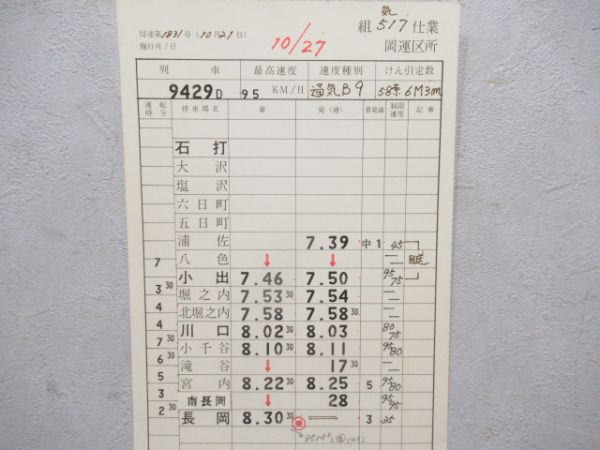 局達第1831号 (10月21日)
施行月/日
10/27
気し
組 517 仕業
岡運区所
列車 最高速度 速度種別 けん引定数
9429D 95 KM/H 通気B9 6M3m
運転時分 停車場名 着 発(通) 着発線 制限速度 記事
石打
大沢
塩沢
六日町
五日町
浦佐 7.39 中1 45
7 八色 ↓ ↓ —
小出 7.46 7.50 95 75
3 30 堀之内 7.53 30 7.54 —
4 北堀之内 7.58 7.58 30 —
4 川口 8.02 30 8.03 80 75
7 小千谷 8.10 30 8.11 95 80
6 30 滝谷 ↓ 17 30 —
5 宮内 8.22 30 8.25 5 95 80
3 南長岡 ↓ 28 95 95
2 30 長岡 8.30 30 = 3 35